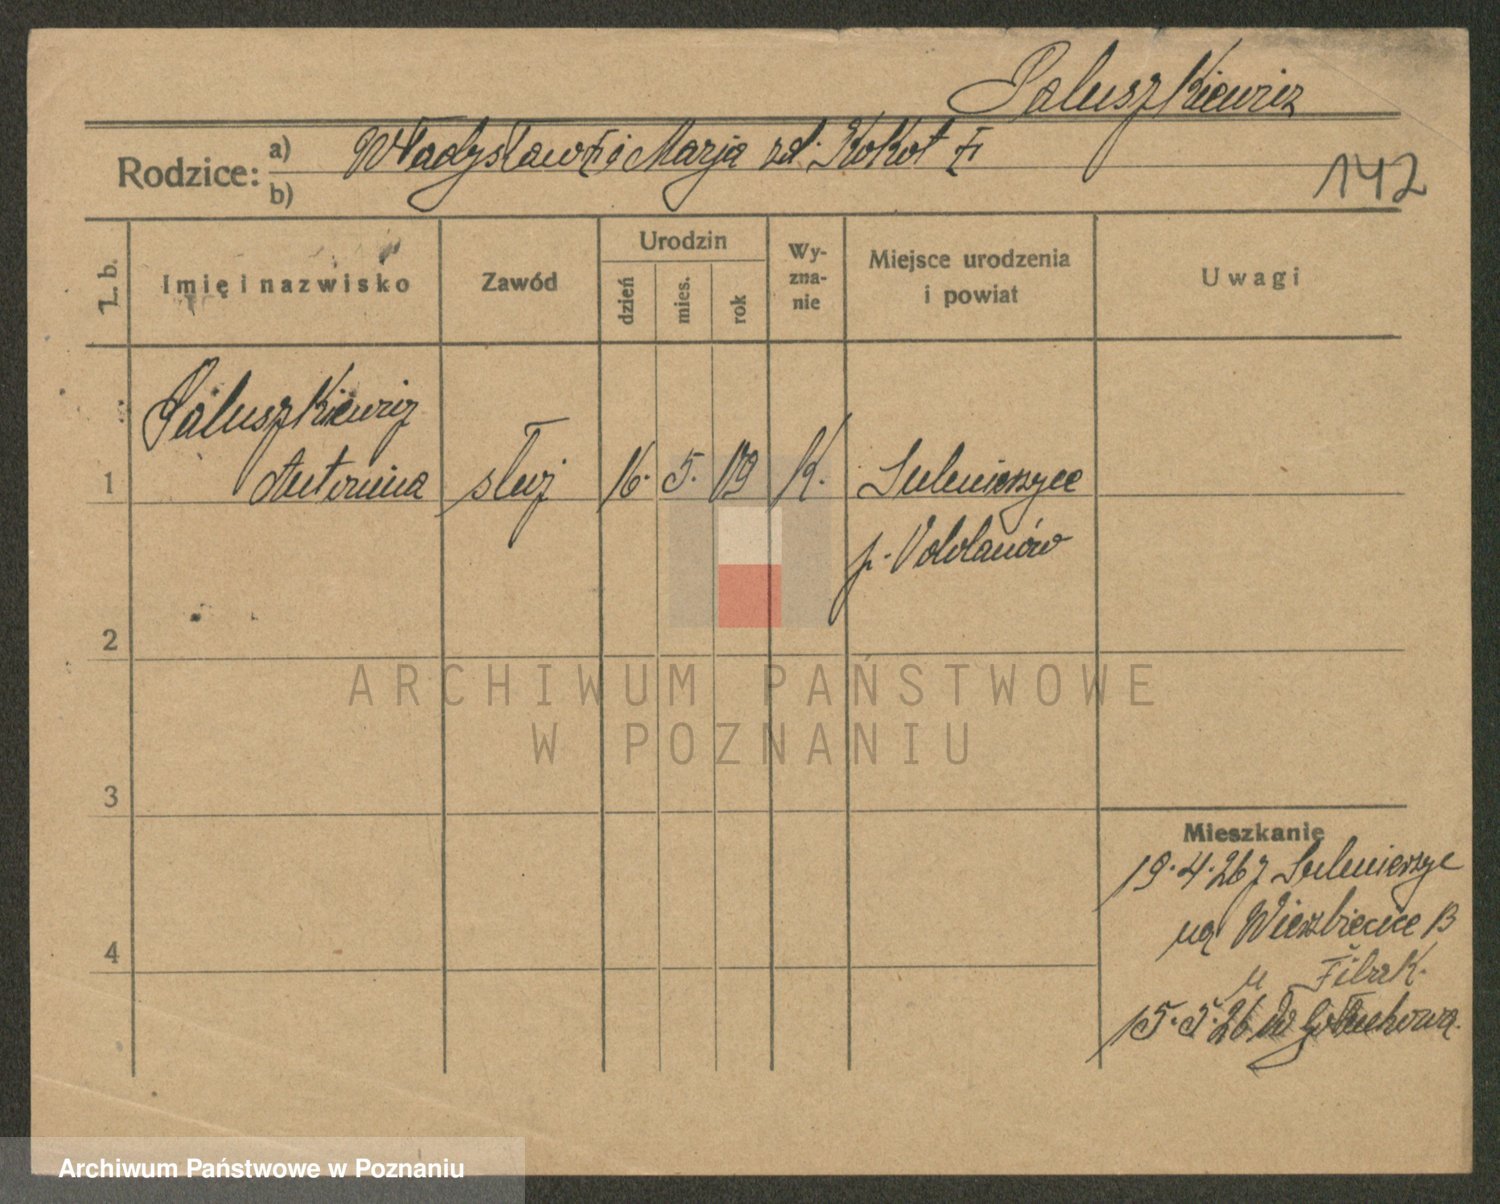 Paluszkiewicz
Rodzice: a) Władysław i Marja zd. Kokot
b)
142
L. b.
Imię i nazwisko
Zawód
Urodzin
dzień
mies.
rok
Wy-
zna-
nie
Miejsce urodzenia
i powiat
Uwagi
Paluszkiewicz
1 Antonina służ 16. 5. 09 K. Sulmierzyce
p. Odolanów
2
3
4
Mieszkanie
19.4.26 z Sulmierzyc
na Wierzbięcice
u Filak.
15.5.26 do Gołuchowa.
ARCHIWUM PAŃSTWOWE
W POZNANIU
Archiwum Państwowe w Poznaniu